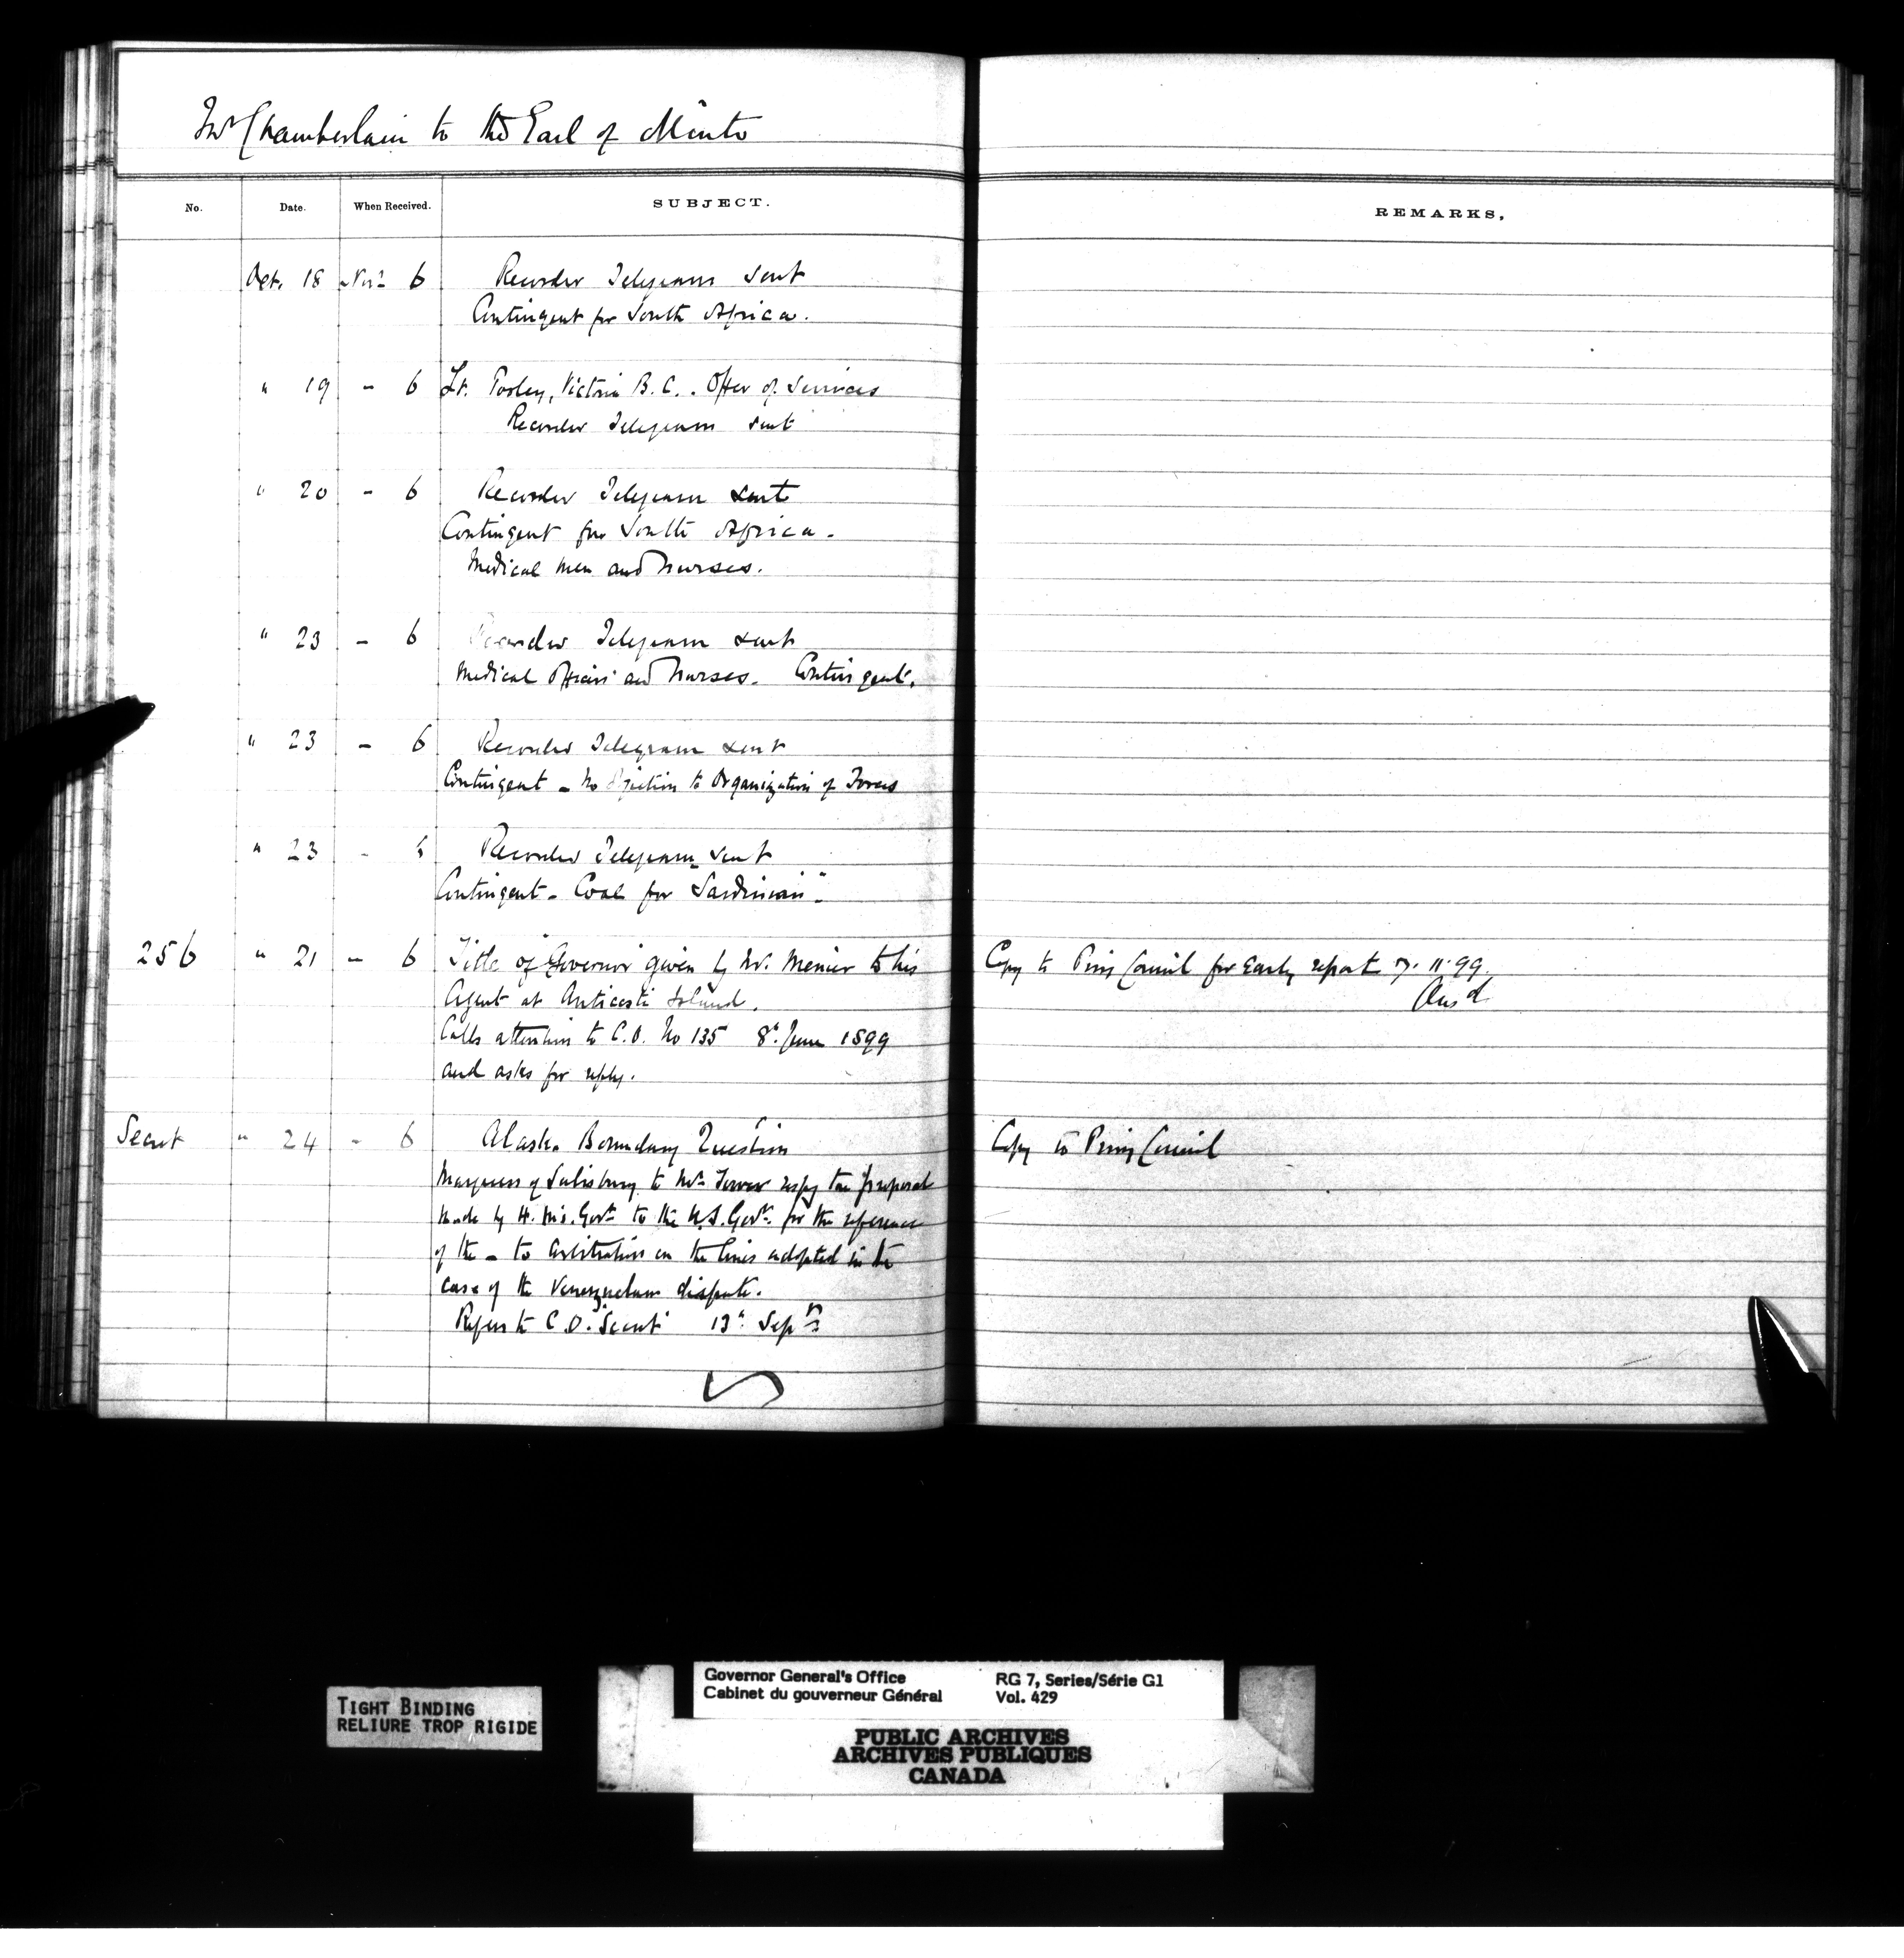 Mr Chamberlain to the Earl of Minto
No. Date. When Received. SUBJECT. REMARKS.
Oct. 18 Novr 6 Recorder Telegram sent
Contingent for South Africa.
" 19 - 6 Lt. Pooley, Victoria B.C. . Offer of Services
Recorder Telegram sent
" 20 - 6 Recorder Telegram sent
Contingent for South Africa.
Medical men and Nurses.
" 23 - 6 Recorder Telegram sent
Medical Officers and Nurses. Contingent.
" 23 - 6 Recorder Telegram sent
Contingent - No objection to Organization of Forces
" 23 - 6 Recorder Telegram sent
Contingent - Coal for "Sardinian".
256 " 21 - 6 Title of "Governor" given by Mr. Menier to his Copy to Privy Council for early report 7. 11. 99.
Agent at Anticosti Island. Ansd
Calls attention to C.O. No 135 8th June 1899
and asks for reply.
Secret " 24 - 6 Alaska Boundary Question Copy to Privy Council
Marquess of Salisbury to Mr. Tower respg the proposal
made by H. Ms. Govt. to the U.S. Govt. for the reference
of the - to arbitration on the lines adopted in the
case of the Venezuelan dispute.
Refers to C.O. "Secret" 13th Sepr
TIGHT BINDING
RELIURE TROP RIGIDE
Governor General's Office RG 7, Series/Série G1
Cabinet du gouverneur Général Vol. 429
PUBLIC ARCHIVES
ARCHIVES PUBLIQUES
CANADA